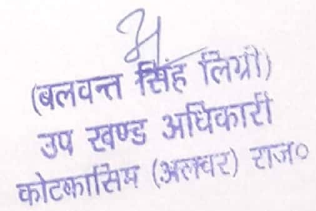 (बलवन्त सिंह लिग्री)
उप खण्ड अधिकारी
कोटकासिम (अलवर) राज०